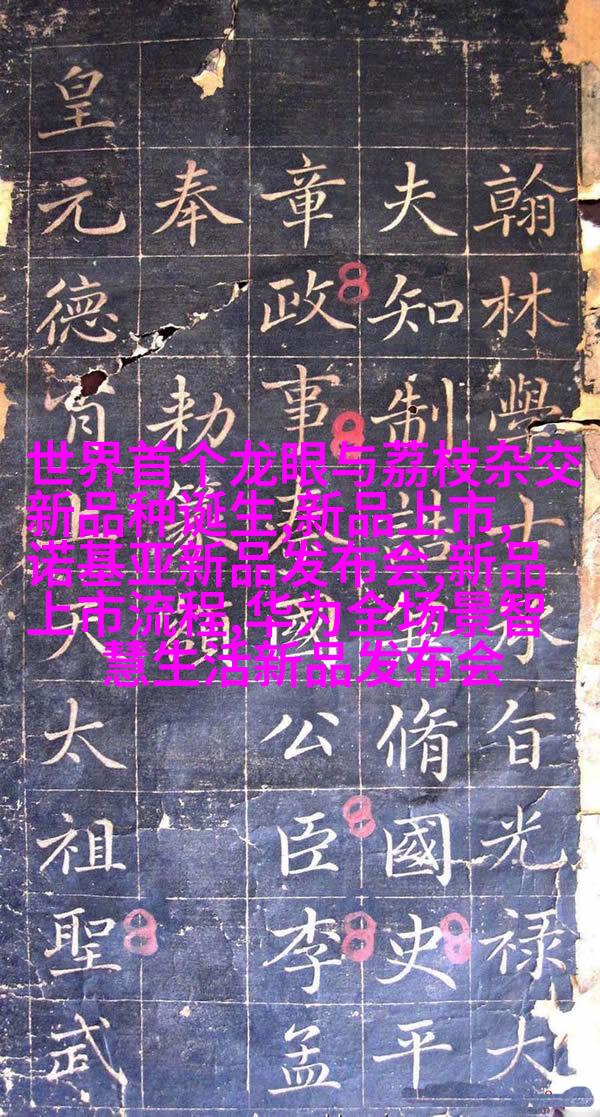 世界首个龙眼与荔枝杂交
新品种诞生,新品上市,
诺基亚新品发布会,新品
上市流程,华为全场景智
慧生活新品发布会
翰林學士承旨光禄大
夫知制誥脩國史平
章政事秦國公臣李孟
奉勑篆額
皇元德肖上天太祖聖武